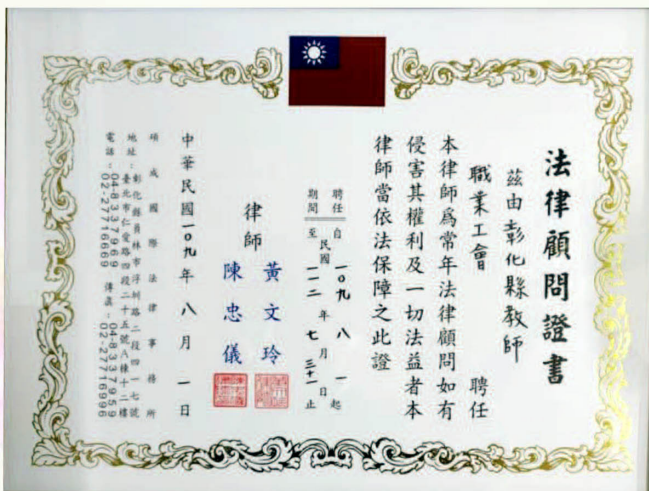 法律顧問證書
茲由彰化縣教師
職業工會　聘任
本律師爲常年法律顧問如有
侵害其權利及一切法益者本
律師當依法保障之此證
聘任 自 民國 一〇九 年 八 月 一 日 起
期間 至 民國 一一二 年 七 月 三十一 日 止
律師
黃文玲
陳忠儀
中華民國一〇九年八月一日
碩成國際法律事務所
地址：彰化縣員林市浮圳路二段四一七號
臺北市仁愛路四段二十五號A棟十二樓
電話：04-8337969 傳真：04-8337959
02-27716669 02-27716996